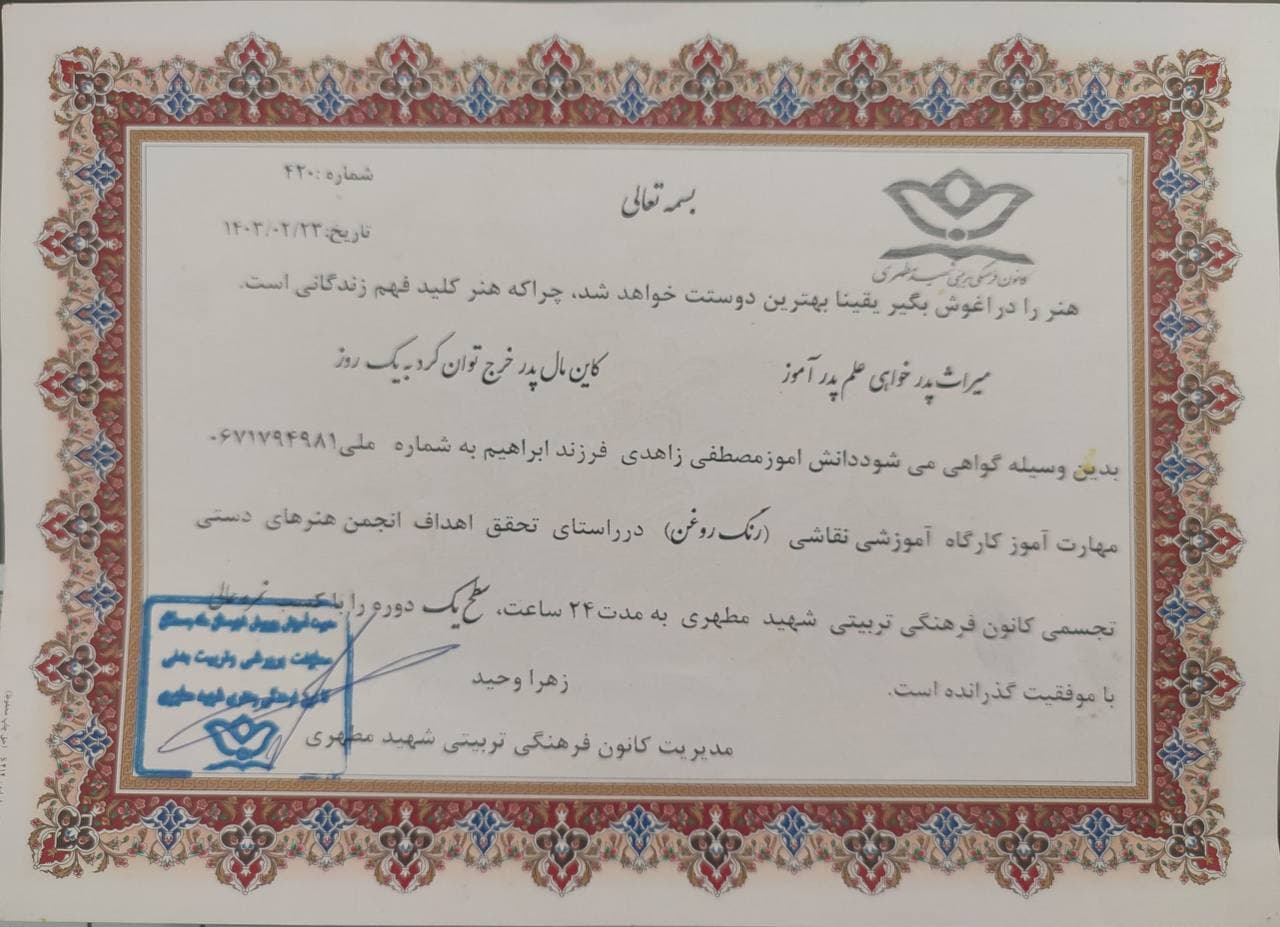 شماره :۴۲۰
بسمه تعالی
تاریخ:۱۴۰۳/۰۲/۲۳
کانون فرهنگی تربیتی شهید مطهری
هنر را دراغوش بگیر یقینا بهترین دوستت خواهد شد، چراکه هنر کلید فهم زندگانی است.
میراث پدر خواهی علم پدر آموز کاین مال پدر خرج توان کرد به یک روز
بدین وسیله گواهی می شوددانش اموزمصطفی زاهدی فرزند ابراهیم به شماره ملی۰۶۷۱۷۹۴۹۸۱
مهارت آموز کارگاه آموزشی نقاشی (رنگ روغن) درراستای تحقق اهداف انجمن هنرهای دستی
تجسمی کانون فرهنگی تربیتی شهید مطهری به مدت۲۴ ساعت، سطح یک دوره را با کسب نمره عالی
با موفقیت گذرانده است.
زهرا وحید
مدیریت کانون فرهنگی تربیتی شهید مطهری
معاونت پرورشی وتربیت بدنی